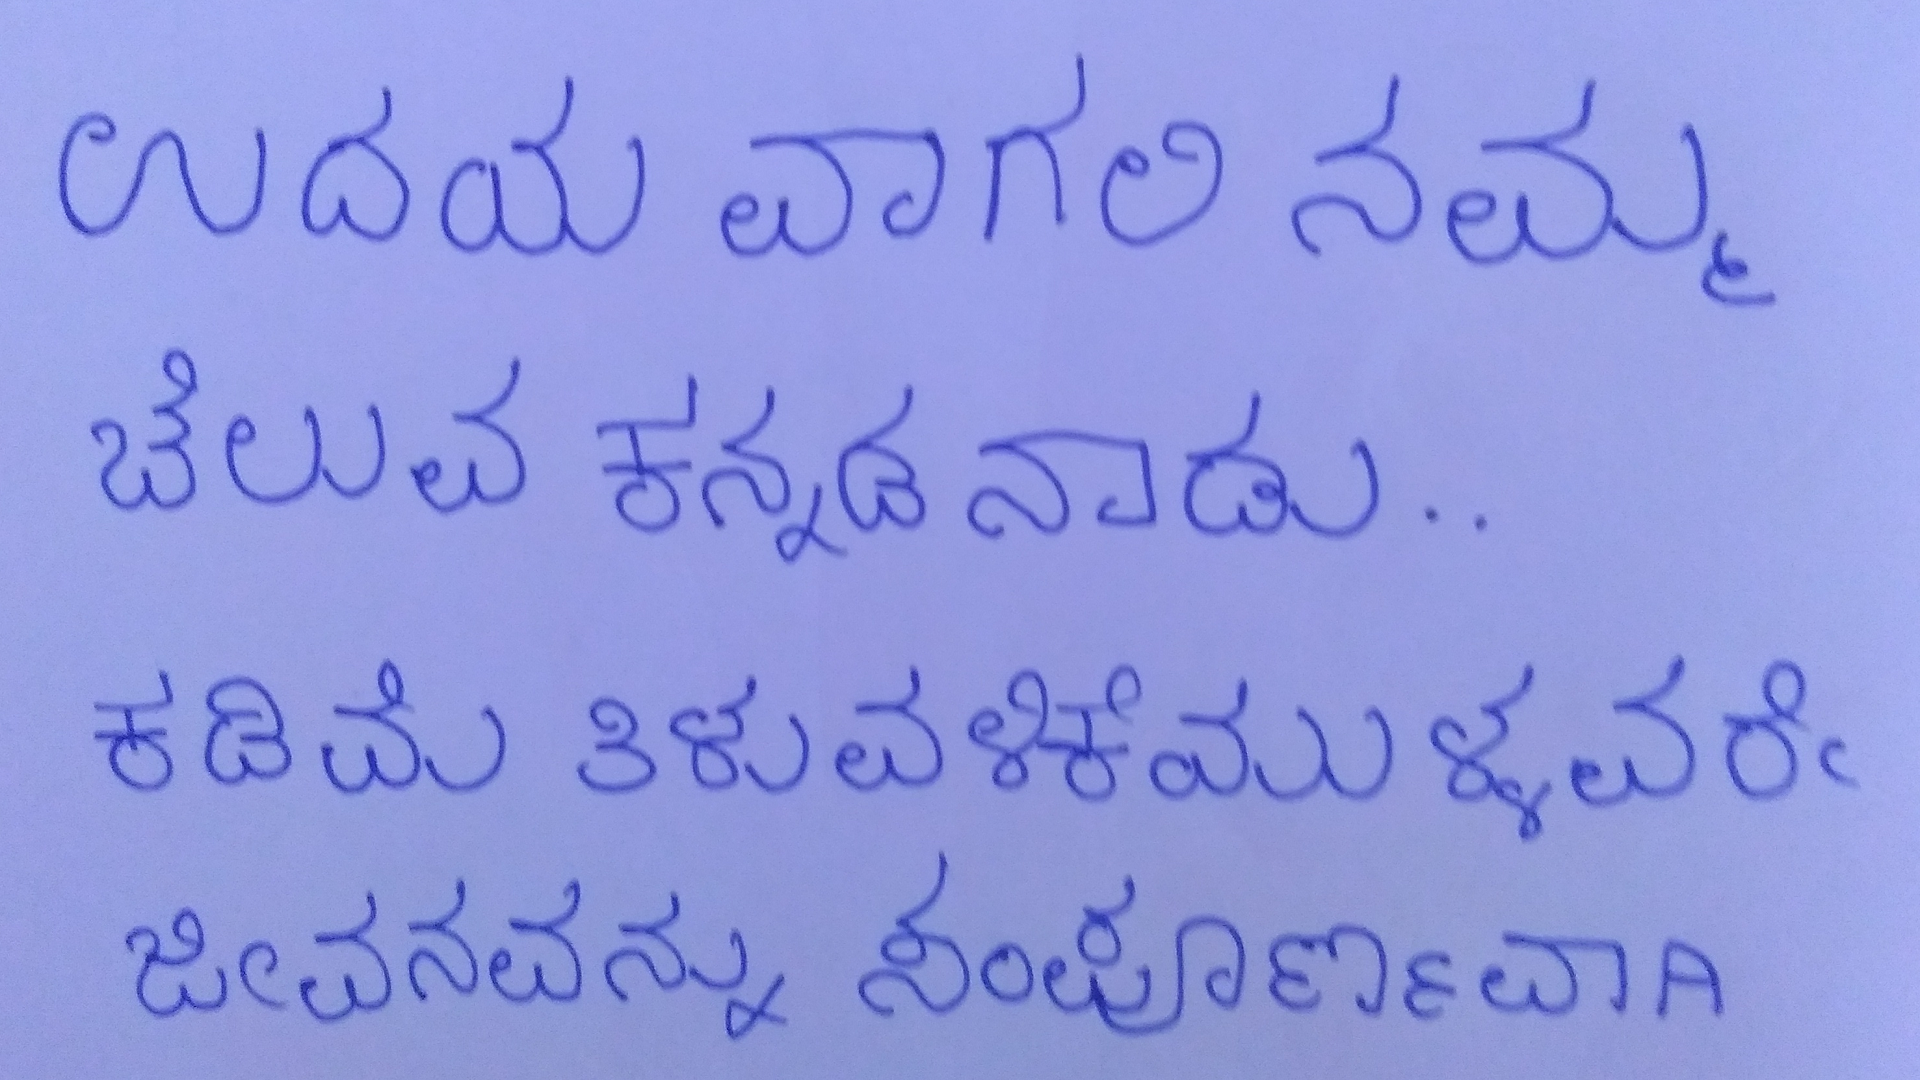 ಉದಯ ವಾಗಲಿ ನಮ್ಮ
ಚೆಲುವ ಕನ್ನಡ ನಾಡು..
ಕಡಿಮೆ ತಿಳುವಳಿಕೆಯುಳ್ಳವರೇ
ಜೀವನವನ್ನು ಸಂಪೂರ್ಣವಾಗಿ